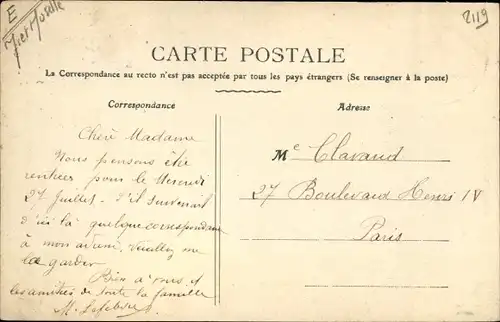 E
2119
CARTE POSTALE
La Correspondance au recto n'est pas acceptée par tous les pays étrangers (Se renseigner à la poste)
Correspondance
Adresse
Chère Madame
Nous pensons être
rentrées pour le Mercredi
27 Juillet - S'il survenait
d'ici là quelque correspondance
à mon , veuillez me
la garder
Bien à vous, et
les amitiés de toute la famille
M. Lefebvre
Me Clavaud
27 Boulevard Henri IV
Paris